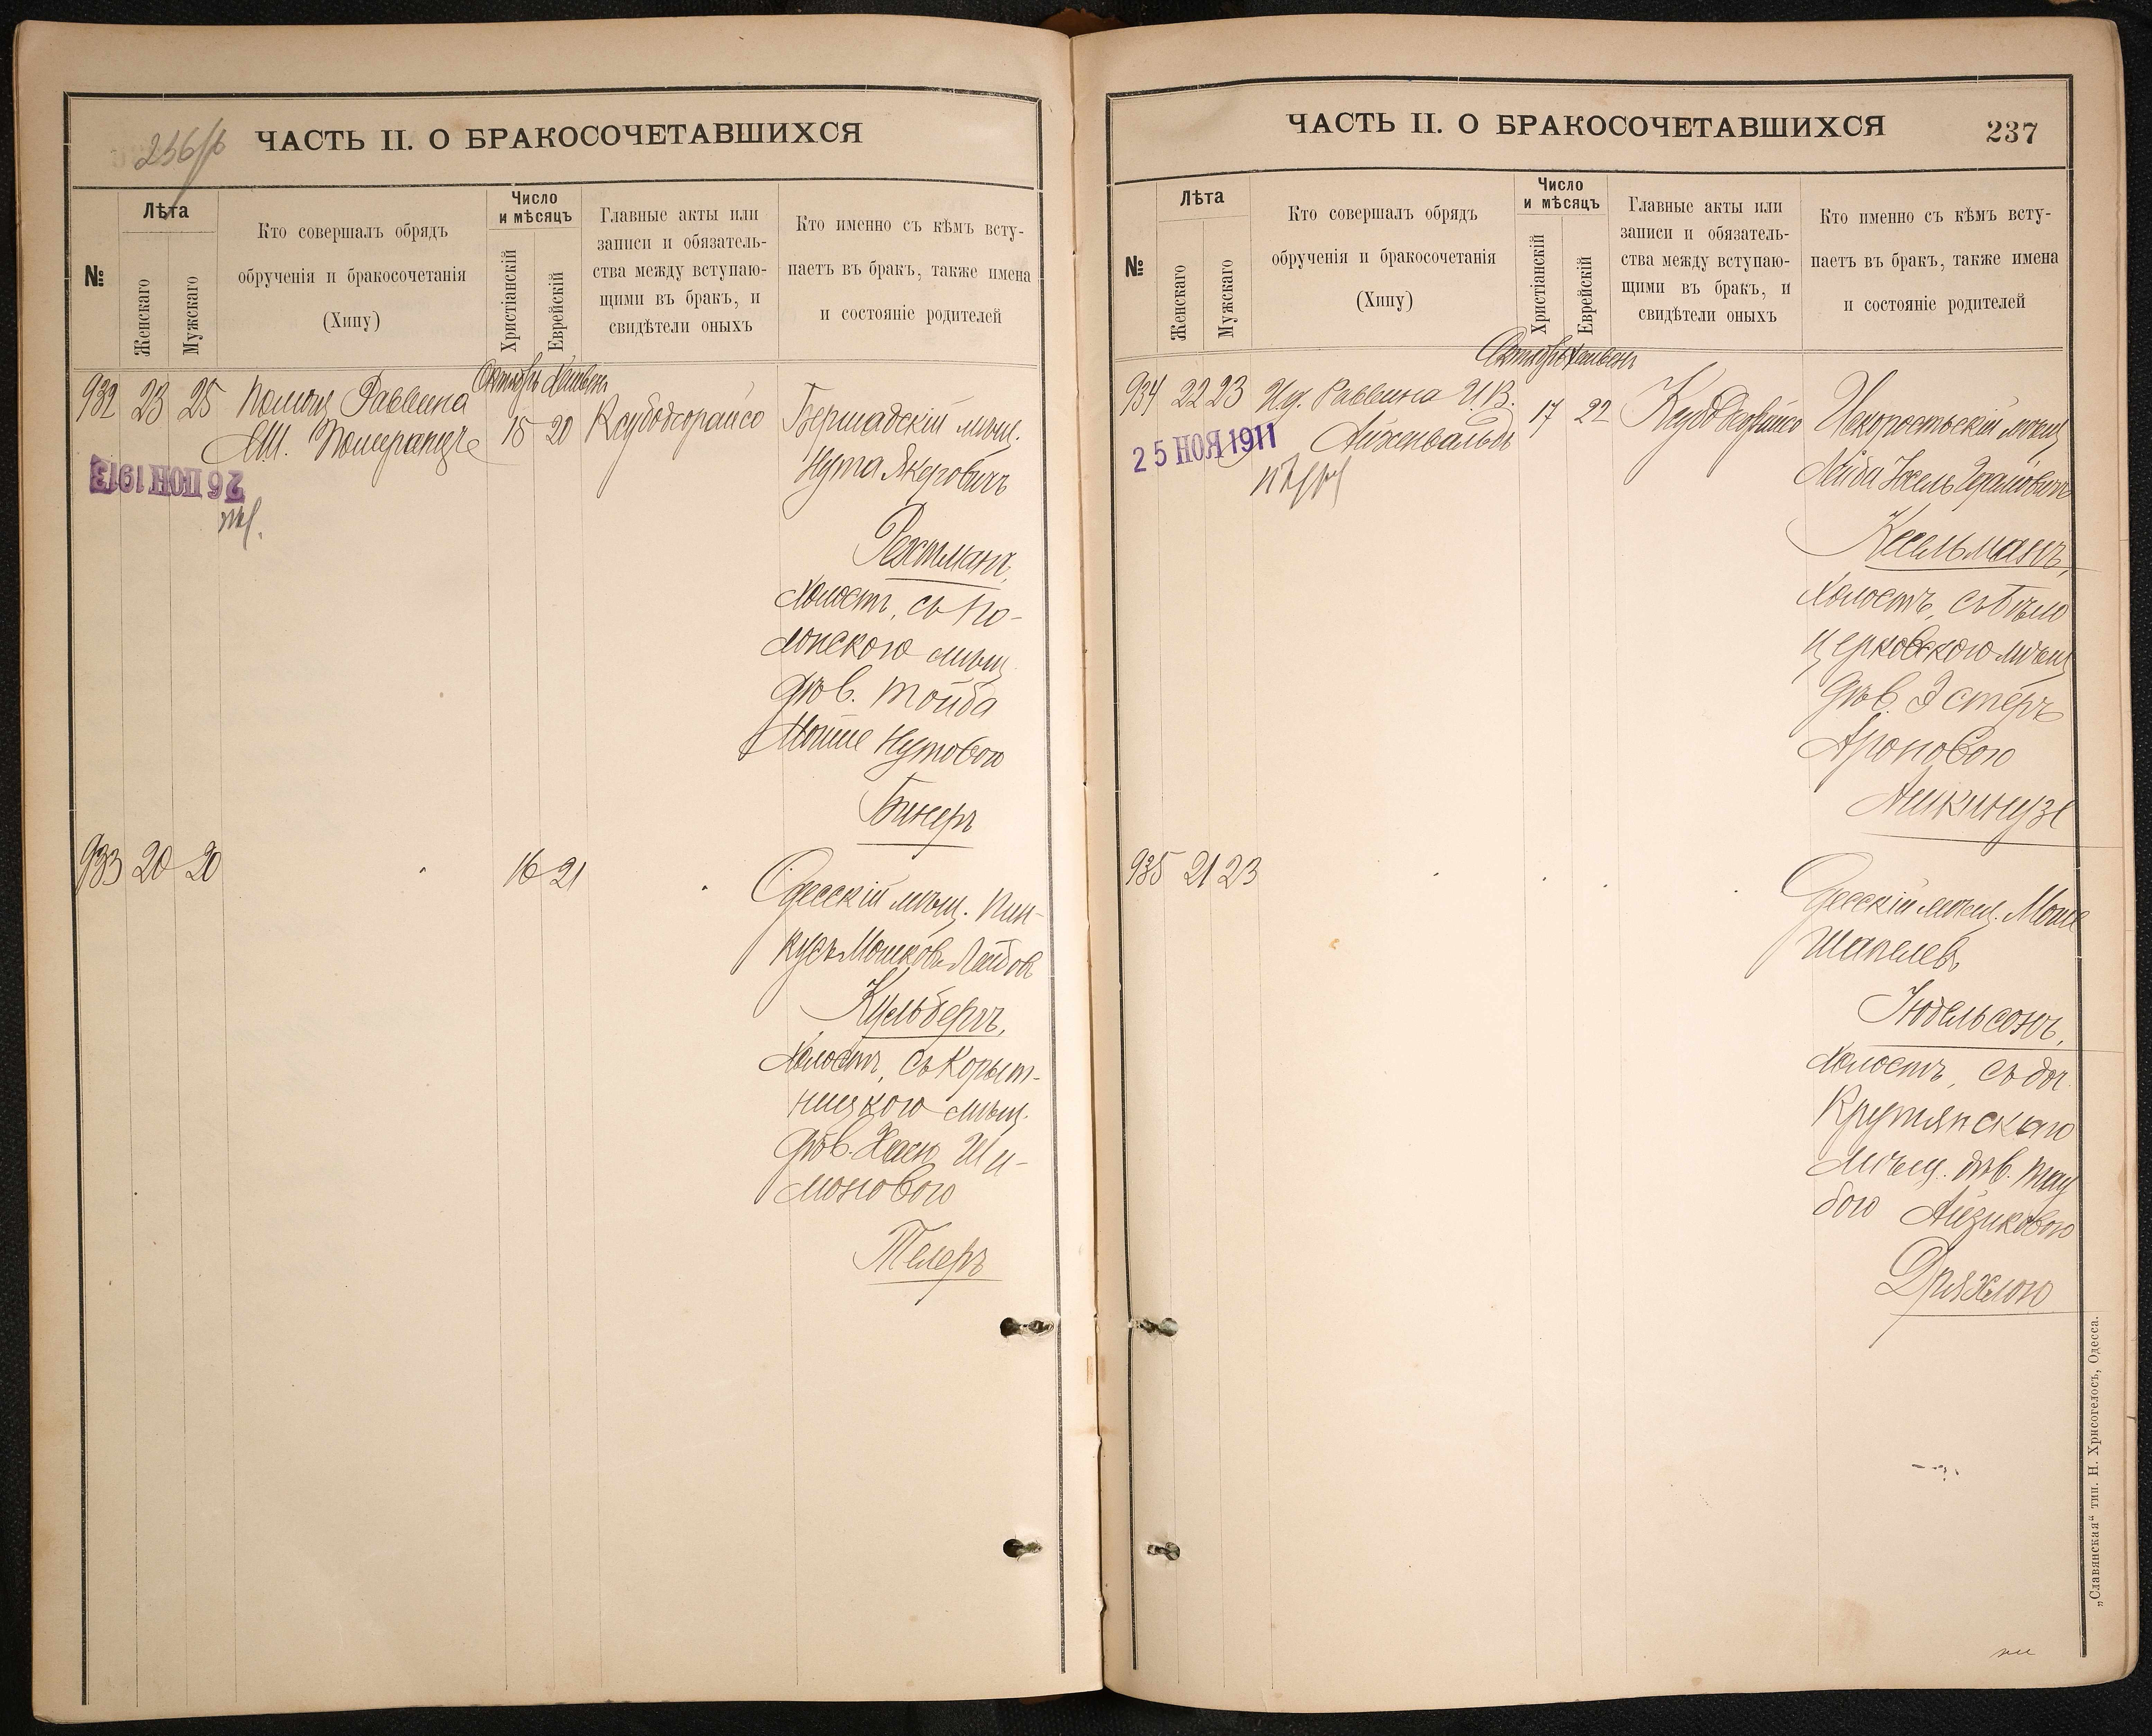 236/б
ЧАСТЬ II. О БРАКОСОЧЕТАВШИХСЯ
№
Лѣта
Женскаго
Мужскаго
Кто совершалъ обрядъ
обрученія и бракосочетанія
(Хипу)
Число
и мѣсяцъ
Христіанскій
Еврейскій
Главные акты или
записи и обязатель-
ства между вступаю-
щими въ бракъ, и
свидѣтели оныхъ
Кто именно съ кѣмъ всту-
паетъ въ бракъ, также имена
и состояніе родителей
Октябрь Хешвень
932 23 25 Помощ Раввина
М. Померанцъ 15 20
26 ІЮН 1913
Бершадскій мѣщ.
Нута Янкеровичъ
Рехтманъ,
холостъ, съ По-
лонскою мѣщ.
дѣв. Тойба
Мотше Нутовою
Бинеръ
933 20 20 16 21
Одесскій мѣщ. Пин-
кусъ Мошковъ Лейбов
Кульбергъ,
холостъ, съ Корыт-
ницкою мѣщ.
дѣв. Хаею Ши-
моновою
Телеръ
ЧАСТЬ II. О БРАКОСОЧЕТАВШИХСЯ
237
№
Лѣта
Женскаго
Мужскаго
Кто совершалъ обрядъ
обрученія и бракосочетанія
(Хипу)
Число
и мѣсяцъ
Христіанскій
Еврейскій
Главные акты или
записи и обязатель-
ства между вступаю-
щими въ бракъ, и
свидѣтели оныхъ
Кто именно съ кѣмъ всту-
паетъ въ бракъ, также имена
и состояніе родителей
Октябрь Хешвень
934 22 23 И.д. Раввина И.В.
Айзенвальдъ 17 22
25 НОЯ 1911
Искоростьскій мѣщ
Лейба
Кесельманъ,
холостъ, съ Бѣло
церковскою мѣщ
дѣв. Эстеръ
Ароновою
Ашкинузе
935 21 23
Одесскій мѣщ. Моше
Шапелевъ
Юдельсонъ,
холостъ, съ доч.
Крутянскаго
мѣщ. дѣв. Тау
бою Айзиковою
Дряхлою
„Славянская“ тип. Н. Хрисогелосъ, Одесса.